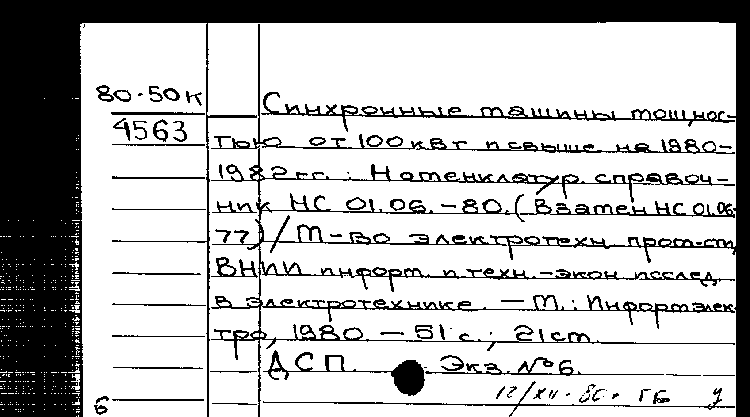 80-50К
4563
Синхронные машины мощнос-
тью от 100 квт и свыше на 1980-
1982 гг. : Номенклатур. справоч-
ник НС 01.06.-80. (Взамен НС 01.06-
77) / М-во электротехн. пром-сти,
ВНИИ информ. и техн.-экон. исслед.
в электротехнике. — М. : Информэлек-
тро, 1980. — 51 с. ; 21 см.
ДСП. Экз. №6.
6